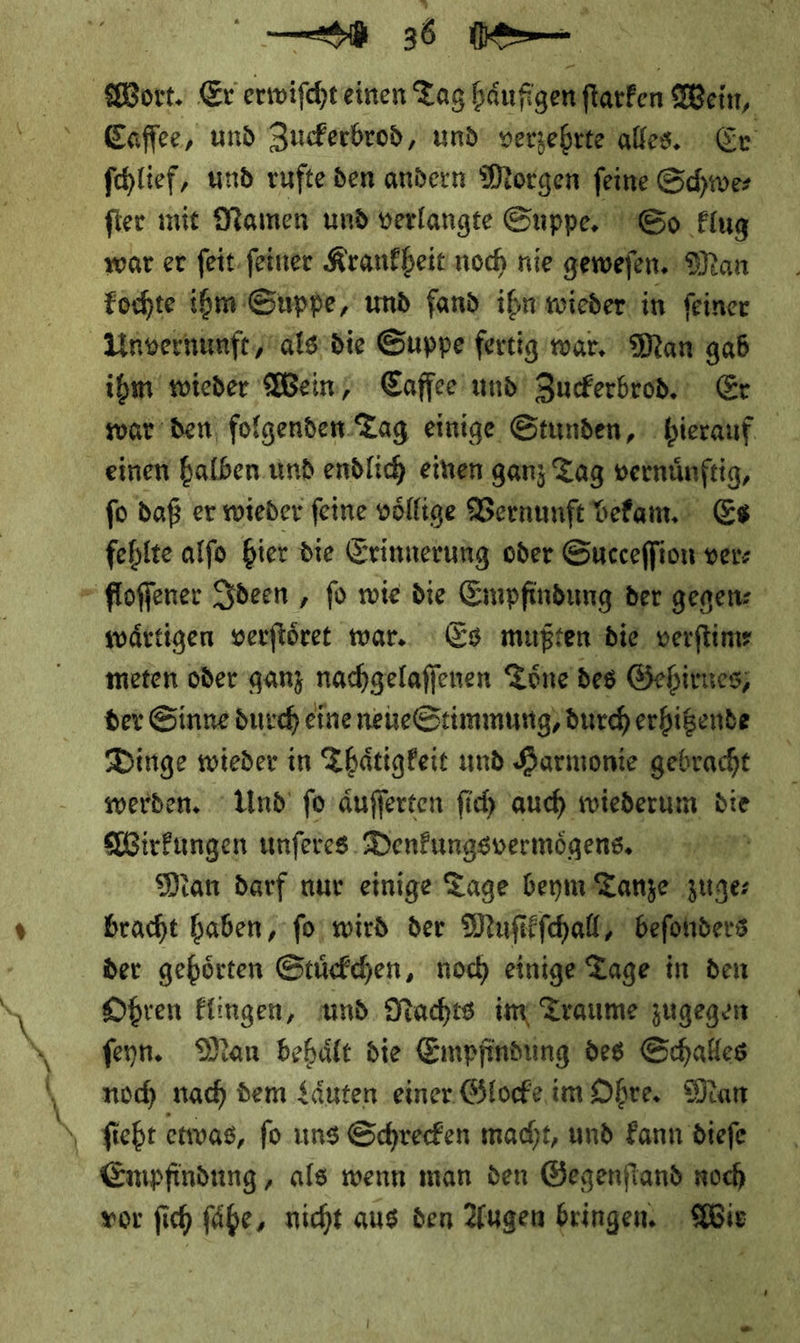 36
Wort. Er erwischt einen Tag häufigen starken Wein,
Caffee, und Zuckerbrod, und verzehrte alles. Er
schlief, und rufte den andern Morgen seine Schwe-
ster mit Namen und verlangte Suppe. So klug
war er seit seiner Krankheit noch nie gewesen. Man
kochte ihm Suppe, und fand ihn wieder in seiner
Unvernunft, als die Suppe fertig war. Man gab
ihm wieder Wein, Caffee und Zuckerbrod. Er
war den folgenden Tag einige Stunden, hierauf
einen halben und endlich einen ganz Tag vernünftig,
so daß er wieder seine völlige Vernunft bekam. Es
fehlte also hier die Erinnerung oder Succession ver-
flossener Ideen , so wie die Empfindung der gegen-
wärtigen verstöret war. Es mußten die verstim-
meten oder ganz nachgelassenen Töne des Gehirnes,
der Sinne durch eine neue Stimmung, durch erhitzende
Dinge wieder in Thätigkeit und Harmonie gebracht
werden. Und so äusserten sich auch wiederum die
Wirkungen unseres Denkungsvermögens.
Man darf nur einige Tage beym Tanze zuge-
bracht haben, so wird der Musikschall, besonders
der gehörten Stückchen, noch einige Tage in den
Ohren klingen, und Nachts im Traume zugegen
seyn. Man behält die Empfindung des Schalles
noch nach dem Läuten einer Glocke im Ohre. Man
sieht etwas, so uns Schrecken macht, und kann diese
Empfindung, als wenn man den Gegenstand noch
vor sich sähe, nicht aus den Augen bringen. Wie